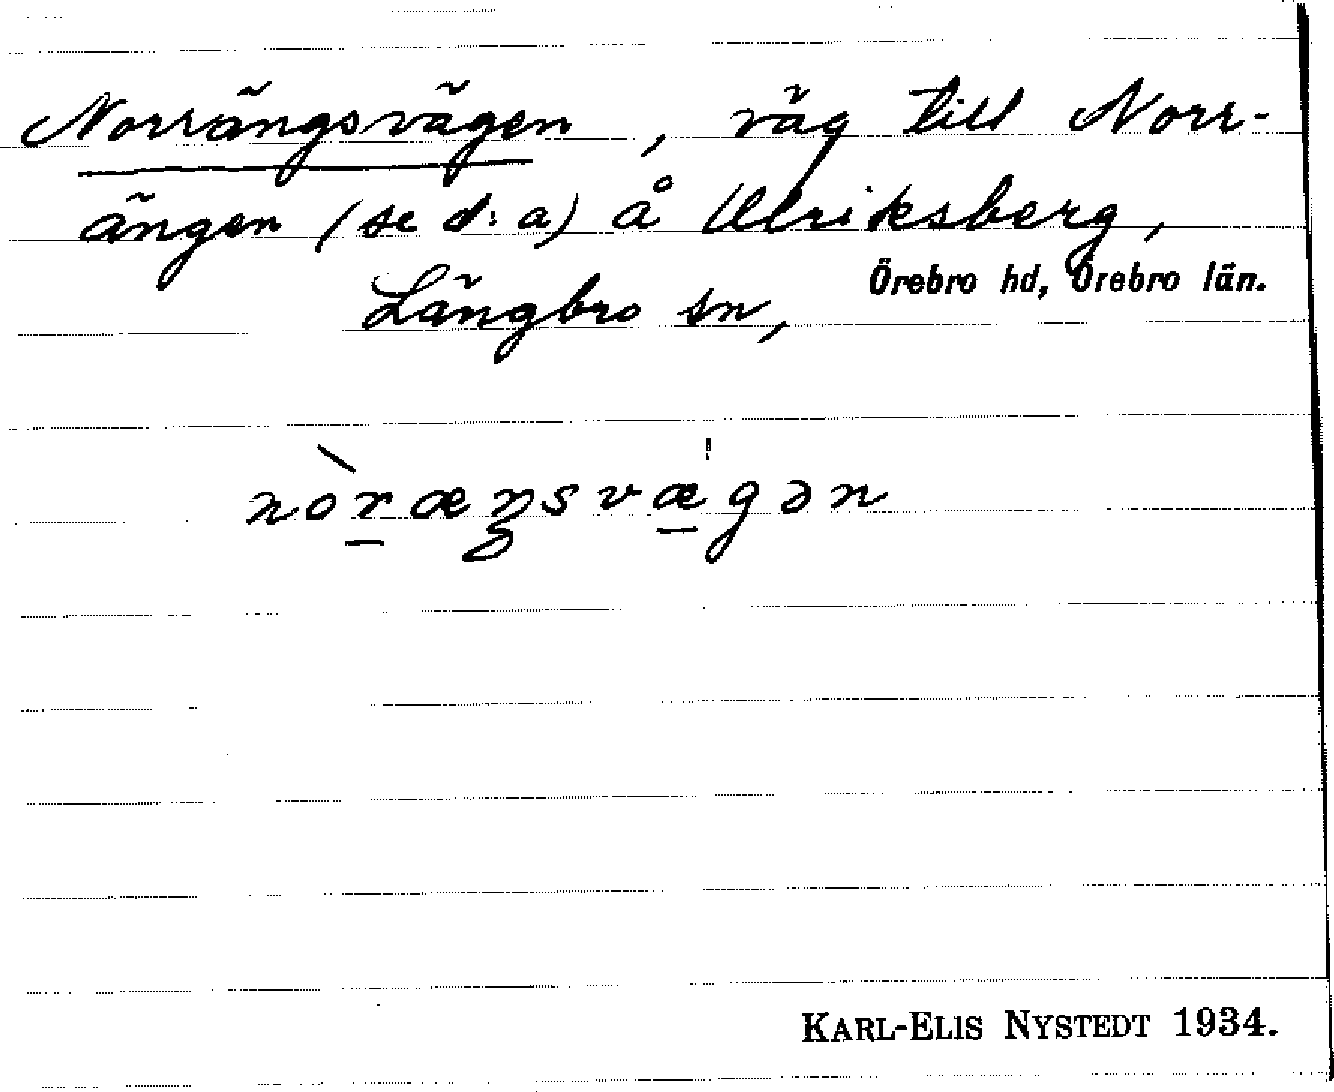 Norrängsvägen, väg till Norr-
ängen (se d:a) å Ulriksberg,
Örebro hd, Örebro län.
Längbro sn,
nòr̠æŋsvæ̠gən
KARL-ELIS NYSTEDT 1934.